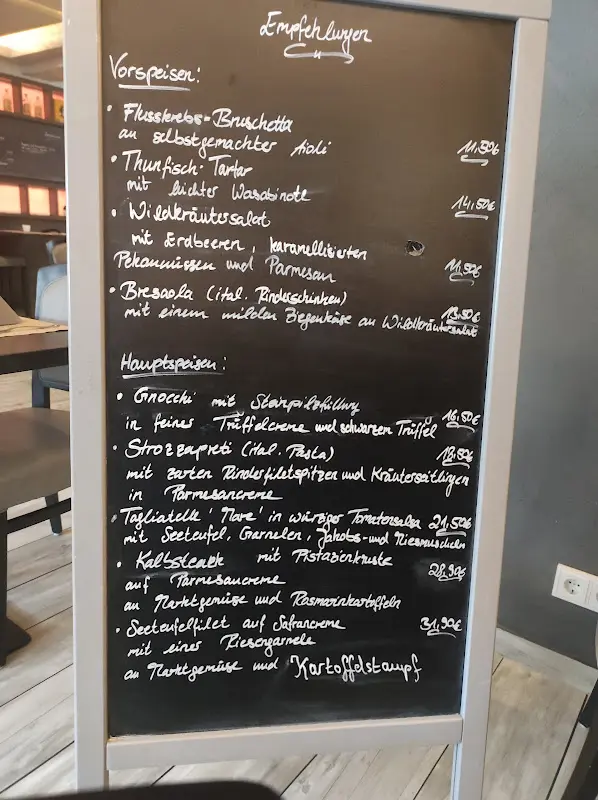 Empfehlungen
Vorspeisen:
• Flusskrebs-Bruschetta
an selbstgemachter Aioli 11,50€
• Thunfisch-Tartar
mit leichter Wasabinote 14,50€
• Wildkräutersalat
mit Erdbeeren, karamellisierten
Pekannüssen und Parmesan 11,50€
• Bresaola (ital. Rinderschinken)
mit einem milden Ziegenkäse an Wildkräutersalat 13,50€
Hauptspeisen:
• Gnocchi mit Steinpilzfüllung
in feiner Trüffelcreme und schwarzen Trüffel 16,50€
• Strozzapreti (ital. Pasta) 18,50€
mit zarten Rinderfiletspitzen und Kräuterseitlingen
in Parmesancreme
• Tagliatelle 'Mare' in würziger Tomatensalsa 21,50€
mit Seeteufel, Garnelen, Jakobs- und Miesmuscheln
• Kalbsteak mit Pistazienkruste 28,90€
auf Parmesancreme
an Marktgemüse und Rosmarinkartoffeln
• Seeteufelfilet auf Safrancreme 31,90€
mit einer Riesengarnele
an Marktgemüse und Kartoffelstampf